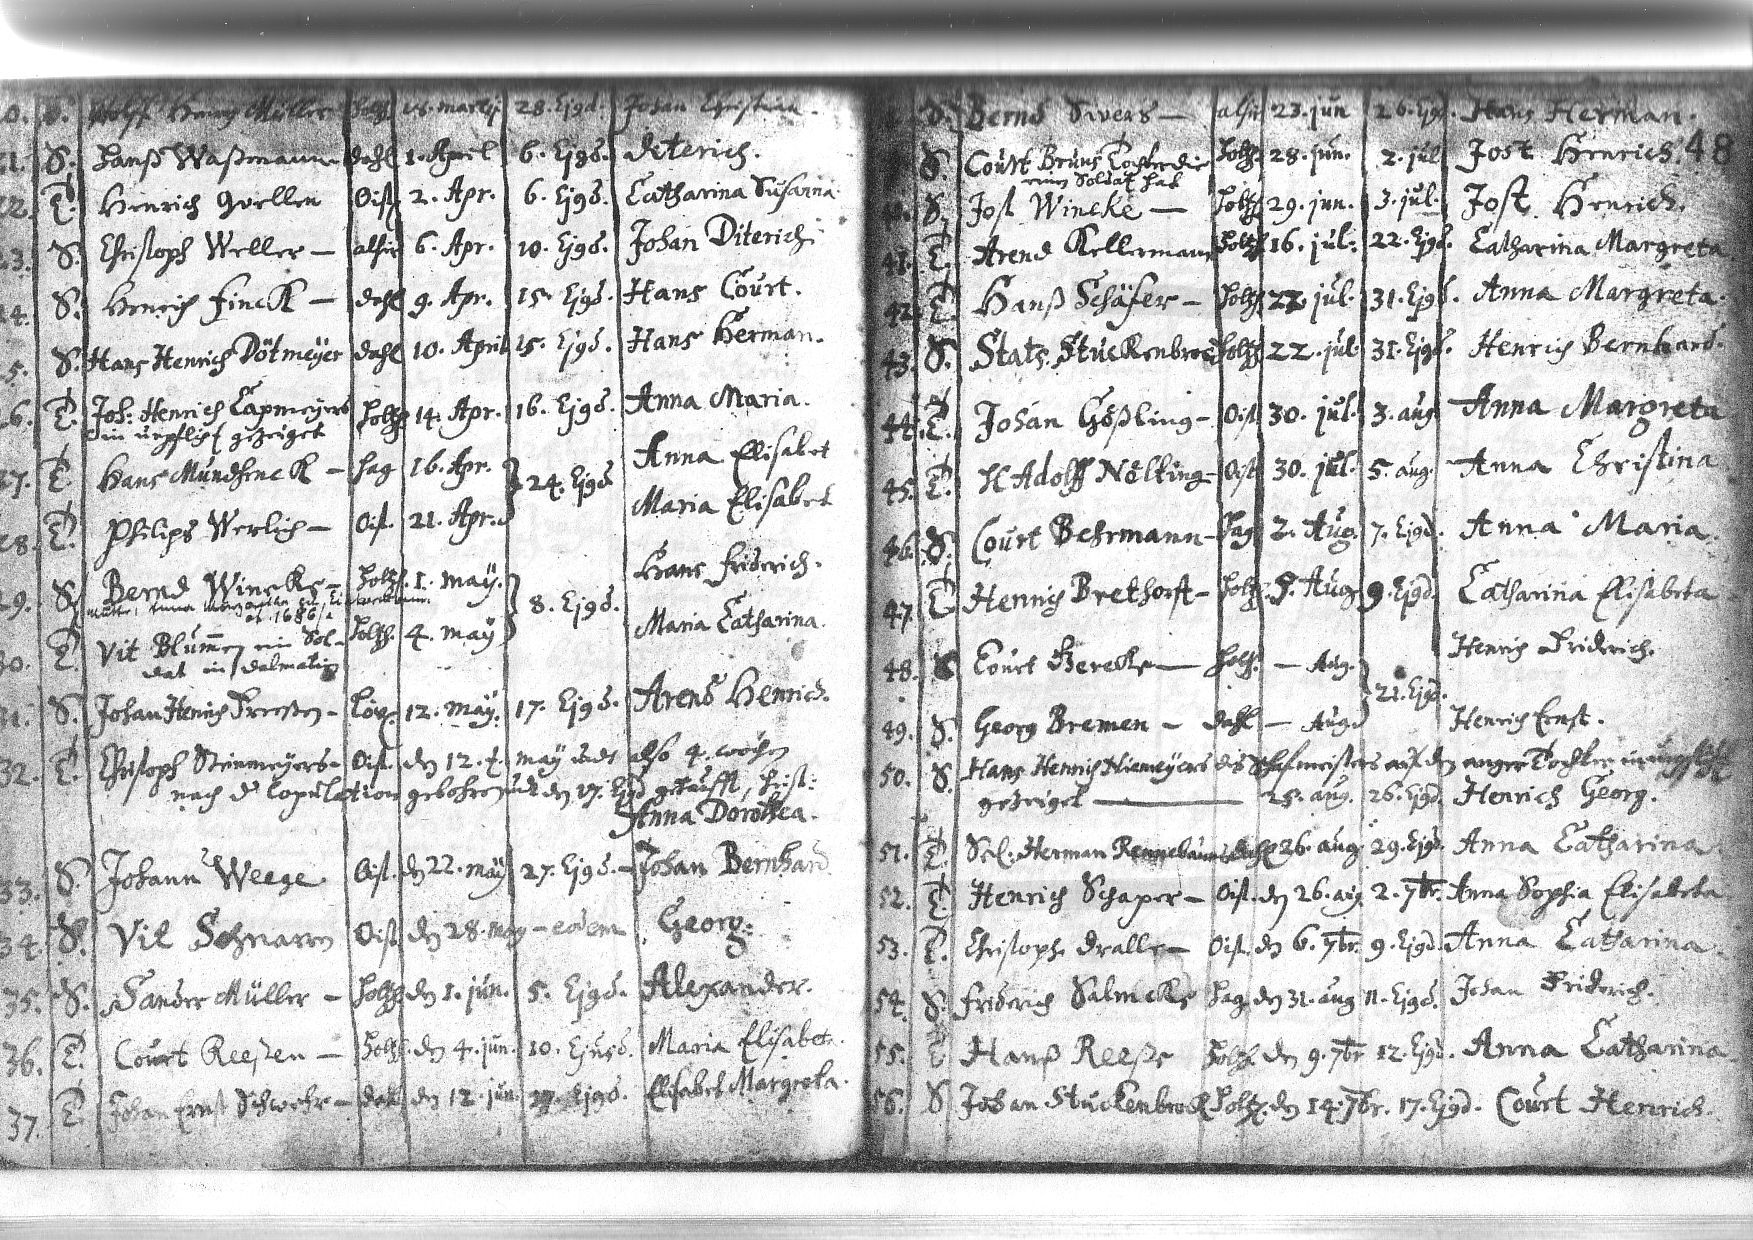 Henry Müller Holtz. 18. martij 28. Ejgd. Johan Christian.
21. S. Hanß Waßmann dahl 1. April 6. Ejgd. diterich.
22. T. Henrich Quellen Oist. 2. Apr. 6. Ejgd. Catharina Susanna
23. S. Christoph Weller – alfer 6. Apr. 10. Ejgd. Johan Diterich
24. S. Henrich Finck – dahl 9. Apr. 15. Ejgd. Hans Court.
25. S. Hans Henrich Dötmeyer dahl 10. April 15. Ejgd. Hans Herman.
26. T. Joh: Henrich Capmeyers Holtz 14. Apr. 16. Ejgd. Anna Maria.
gezeiget
27. T. Hans Mundhenck – Hag 16. Apr. 24. Ejgd Anna Elisabet
28. T. Philips Werlich – Oist. 21. Apr. Maria Elisabet
29. S. Bernd Wincke – Holtz. 1. may. 8. Ejgd. Hans friderich.
1686
30. T. Vit Blumen ein Sol- Holtz. 4. may Maria Catharina.
dat in dalmatien
31. S. Johan Henrich 12. may. 17. Ejgd. Arend Henrich.
32. T. Christoph Steinmeyers – Oist. den 12. may 4. wochen
nach d Copulation gebohren den 17. Ejgd getaufft,
Anna Dorothea.
33. S. Johann Weege Oist. den 22. may 27. Ejgd. – Johan Bernhard
34. S. Vit Oist den 28. may – eodem Georg.
35. S. Sander Müller – Holtz den 1. jun. 5. Ejgd. Alexander.
36. T. Court Reeßen – Holtz den 4. jun. 10. Ejusd. Maria Elisabet.
37. T. Johan Ernst – dahl den 12. jun. Ejgd. Elisabet Margreta.
S. Bernd Sivers – alfer 23. jun 26. Ejgd. Hans Herman.
48
S. Court Bruns Holtz 28. jun. 2. jul Jost Henrich.
Soldat
S. Jost Wincke – Holtz 29. jun. 3. jul. Jost Henrich.
41. T. Arend Kellermann Holtz 16. jul. 22. Ejgd. Catharina Margreta
42. T. Hanß Schäfer – Holtz 22. jul. 31. Ejgd. Anna Margreta.
43. S. Stats Stuckenbrock Holtz 22. jul. 31. Ejgd. Henrich Bernhard.
44. T. Johan Gößling – Oist 30. jul. 3. aug Anna Margreta
45. T. H Adolff Nölting – Oist 30. jul. 5. aug. Anna Christina
46. S. Court Behrmann – Hag 2. Aug. 7. Ejgd. Anna Maria.
47. T. Henrich Brethorst – Holtz. Aug 9. Ejgd. Catharina Elisabeta
48. S Court – Holtz. – Aug. 21. Ejgd. Henrich Friderich.
49. S. Georg Bremen – dahl – Aug. Henrich Ernst.
50. S. Hans Henrich Niemeyers Tochter
gezeiget – 25. aug. 26. Ejgd. Henrich Georg.
51. T. Sel: Herman 26. aug 29. Ejgd. Anna Catharina.
52. T. Henrich Schaper – Oist. den 26. aug. 2. 7br. Anna Sophia Elisabeta
53. T. Christoph dralle – Oist. den 6. 7br. 9. Ejgd. Anna Catharina
54. S. Friderich Hag. den 31. aug 11. Ejgd. Johan Friderich.
55. T Hanß Reeße Holtz. den 9. 7br 12. Ejgd. Anna Catharina
56. S Johan Stuckenbrock Holtz. den 14. 7br. 17. Ejgd. Court Henrich.